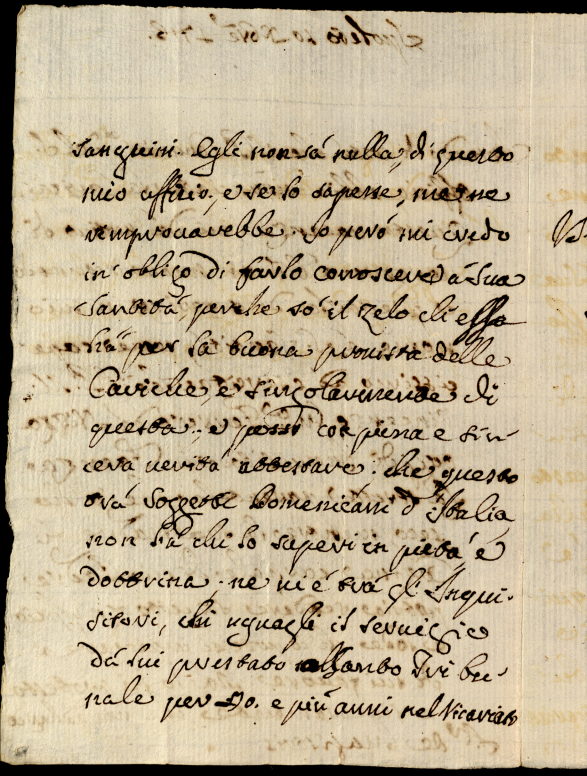 sanguini. Egli non sà nulla, di questo
mio officio, e se lo sapesse, me ne
rimprovarebbe. Io però mi credo
in obligo di farlo conoscere à Sua
Santità, perche sò il zelo che essa
hà per la buona provista delle
Cariche, e singolarmente di
questa, e posso con piena e sin-
cera verità attestare, che questo
trà Soggetti Domenicani d'Italia,
non hà chi lo superi in pietà é
dottrina, ne vi é trà gl'Inqui-
sitori, chi uguagli il servigio
dà lui prestato al Santo Tribu-
nale per 20. e più anni nel Vicariato